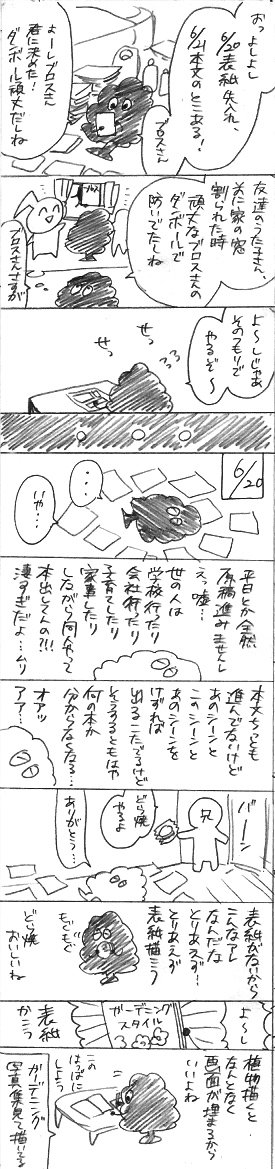 おっ
よしよし
6/20表紙〆入れ、
6/21本文のとこある！
ブロスさん
よーしブロスさん
君に決めた！
ダンボール頑丈だしね
友達のうたさん、
弟に家の窓
割られた時
頑丈なブロスさんの
ダンボールで
防いでたしね
ブロス
ブロスさんさすが
よ〜しじゃあ
そのつもりで
やるぞ〜
せっ
せっ
6/20
・・・
いや…
平日とか全然
原稿進みませんし
えっ嘘…
世の人は
学校行ったり
会社行ったり
子育てしたり
家事したり
しながら何やって
本出してんの?!!
凄すぎだよ…ムリ
本文ちっとも
進んでないけど
あのシーンと
このシーンと
あのシーンを
けずれば
出るこたでるけど
そうするともはや
何の本か
分からなくなる…
オアッ
アア…
バーン
兄
どら焼
やるよ
ありがとう…
表紙がないから
こんなアレ
なんだな
とりあえず…
とりあえず
表紙描こう
もぐもぐ
どら焼
おいしいね
よーし
ガーデニング
スタイル
表紙
かこう
植物描くと
なんとなく
画面が埋まるから
いいよね
この
はっぱに
しよう
ガーデニング
写真集見て描いてる